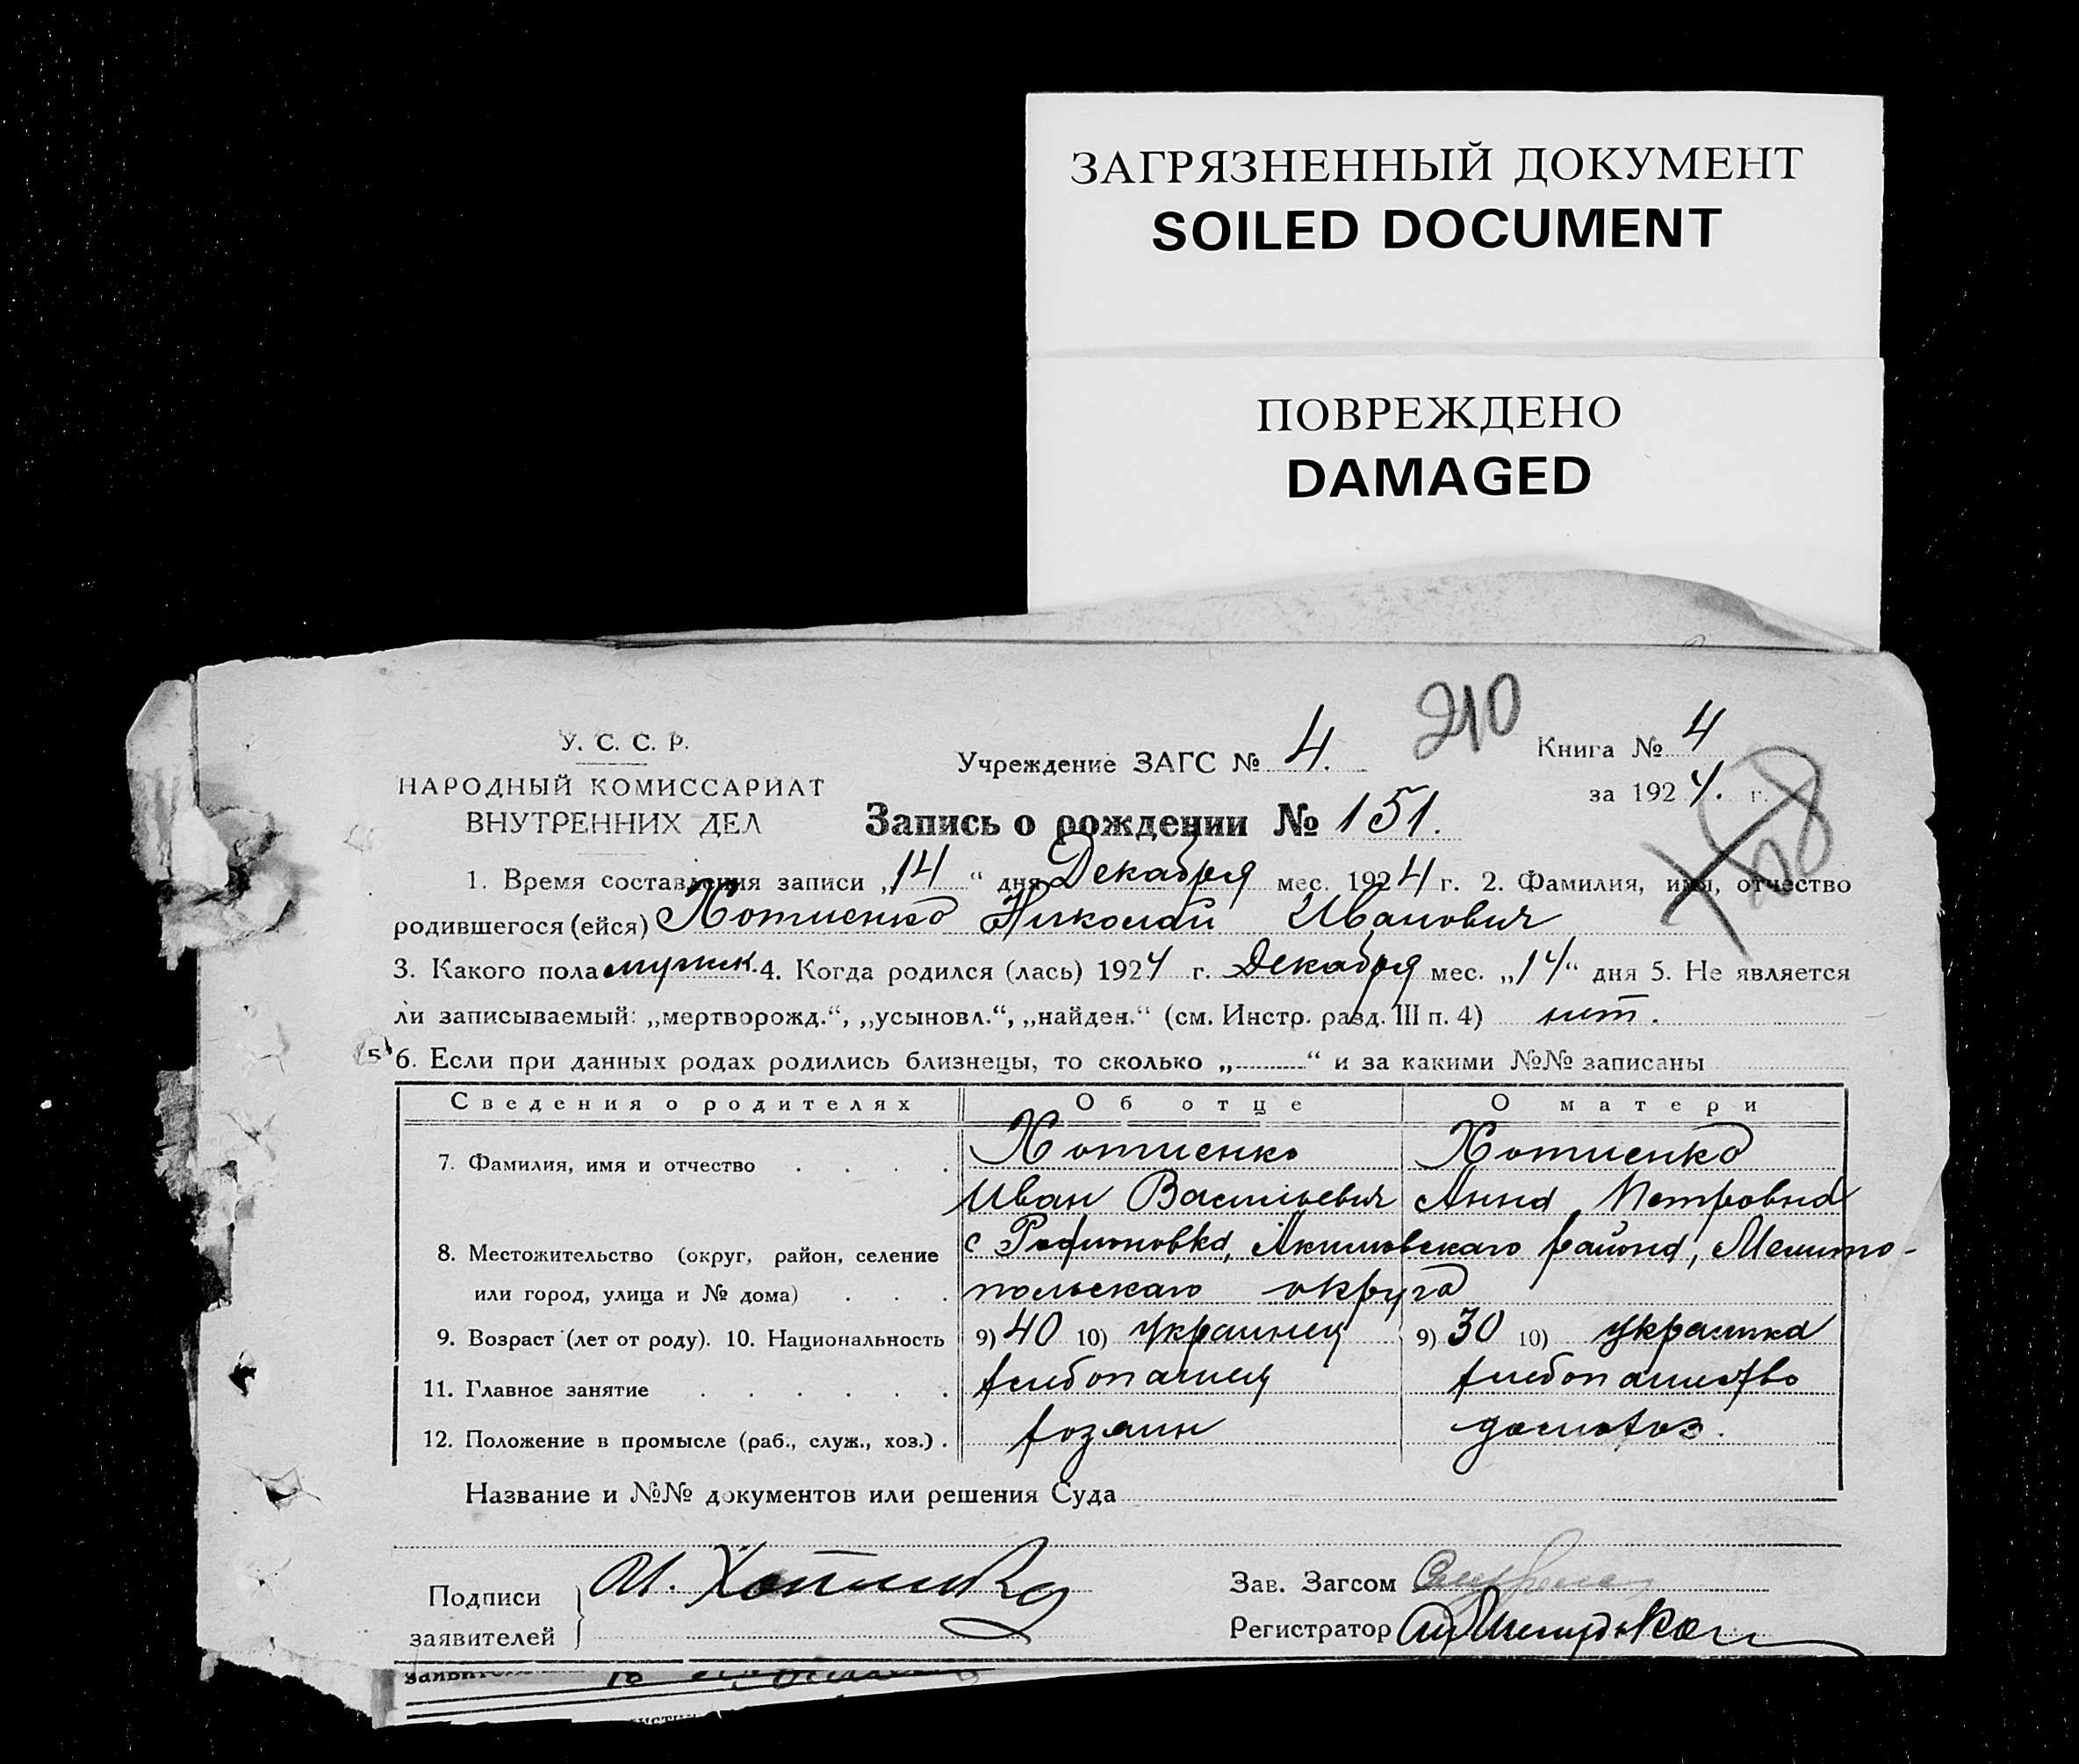 ЗАГРЯЗНЕННЫЙ ДОКУМЕНТ
SOILED DOCUMENT
ПОВРЕЖДЕНО
DAMAGED
210
У. С. С. Р.
НАРОДНЫЙ КОМИССАРИАТ
ВНУТРЕННИХ ДЕЛ
Учреждение ЗАГС № 4.
Книга № 4
за 1924. г.
Запись о рождении № 151.
1. Время составления записи „14“ дня Декабря мес. 1924 г. 2. Фамилия, имя, отчество
родившегося (ейся) Хотиенко Николай Иванович
3. Какого пола мужск. 4. Когда родился (лась) 1924 г. Декабря мес. „14“ дня 5. Не является
ли записываемый: „мертворожд.“, „усыновл.“, „найден.“ (см. Инстр. разд. III п. 4) нет.
6. Если при данных родах родились близнецы, то сколько „ “ и за какими №№ записаны
Сведения о родителях Об отце О матери
7. Фамилия, имя и отчество Хотиенко Хотиенко
Иван Васильевич Анна Петровна
8. Местожительство (округ, район, селение с Родионовка, Акимовскаго района, Мелито-
или город, улица и № дома) польскаго округа
9. Возраст (лет от роду). 10. Национальность 9) 40 10) украинец 9) 30 10) украинка
11. Главное занятие хлебопашец хлебопашество
12. Положение в промысле (раб., служ., хоз.) хозяин домохоз.
Название и №№ документов или решения Суда
Подписи
заявителей
И. Хотиенко
Зав. Загсом
Регистратор